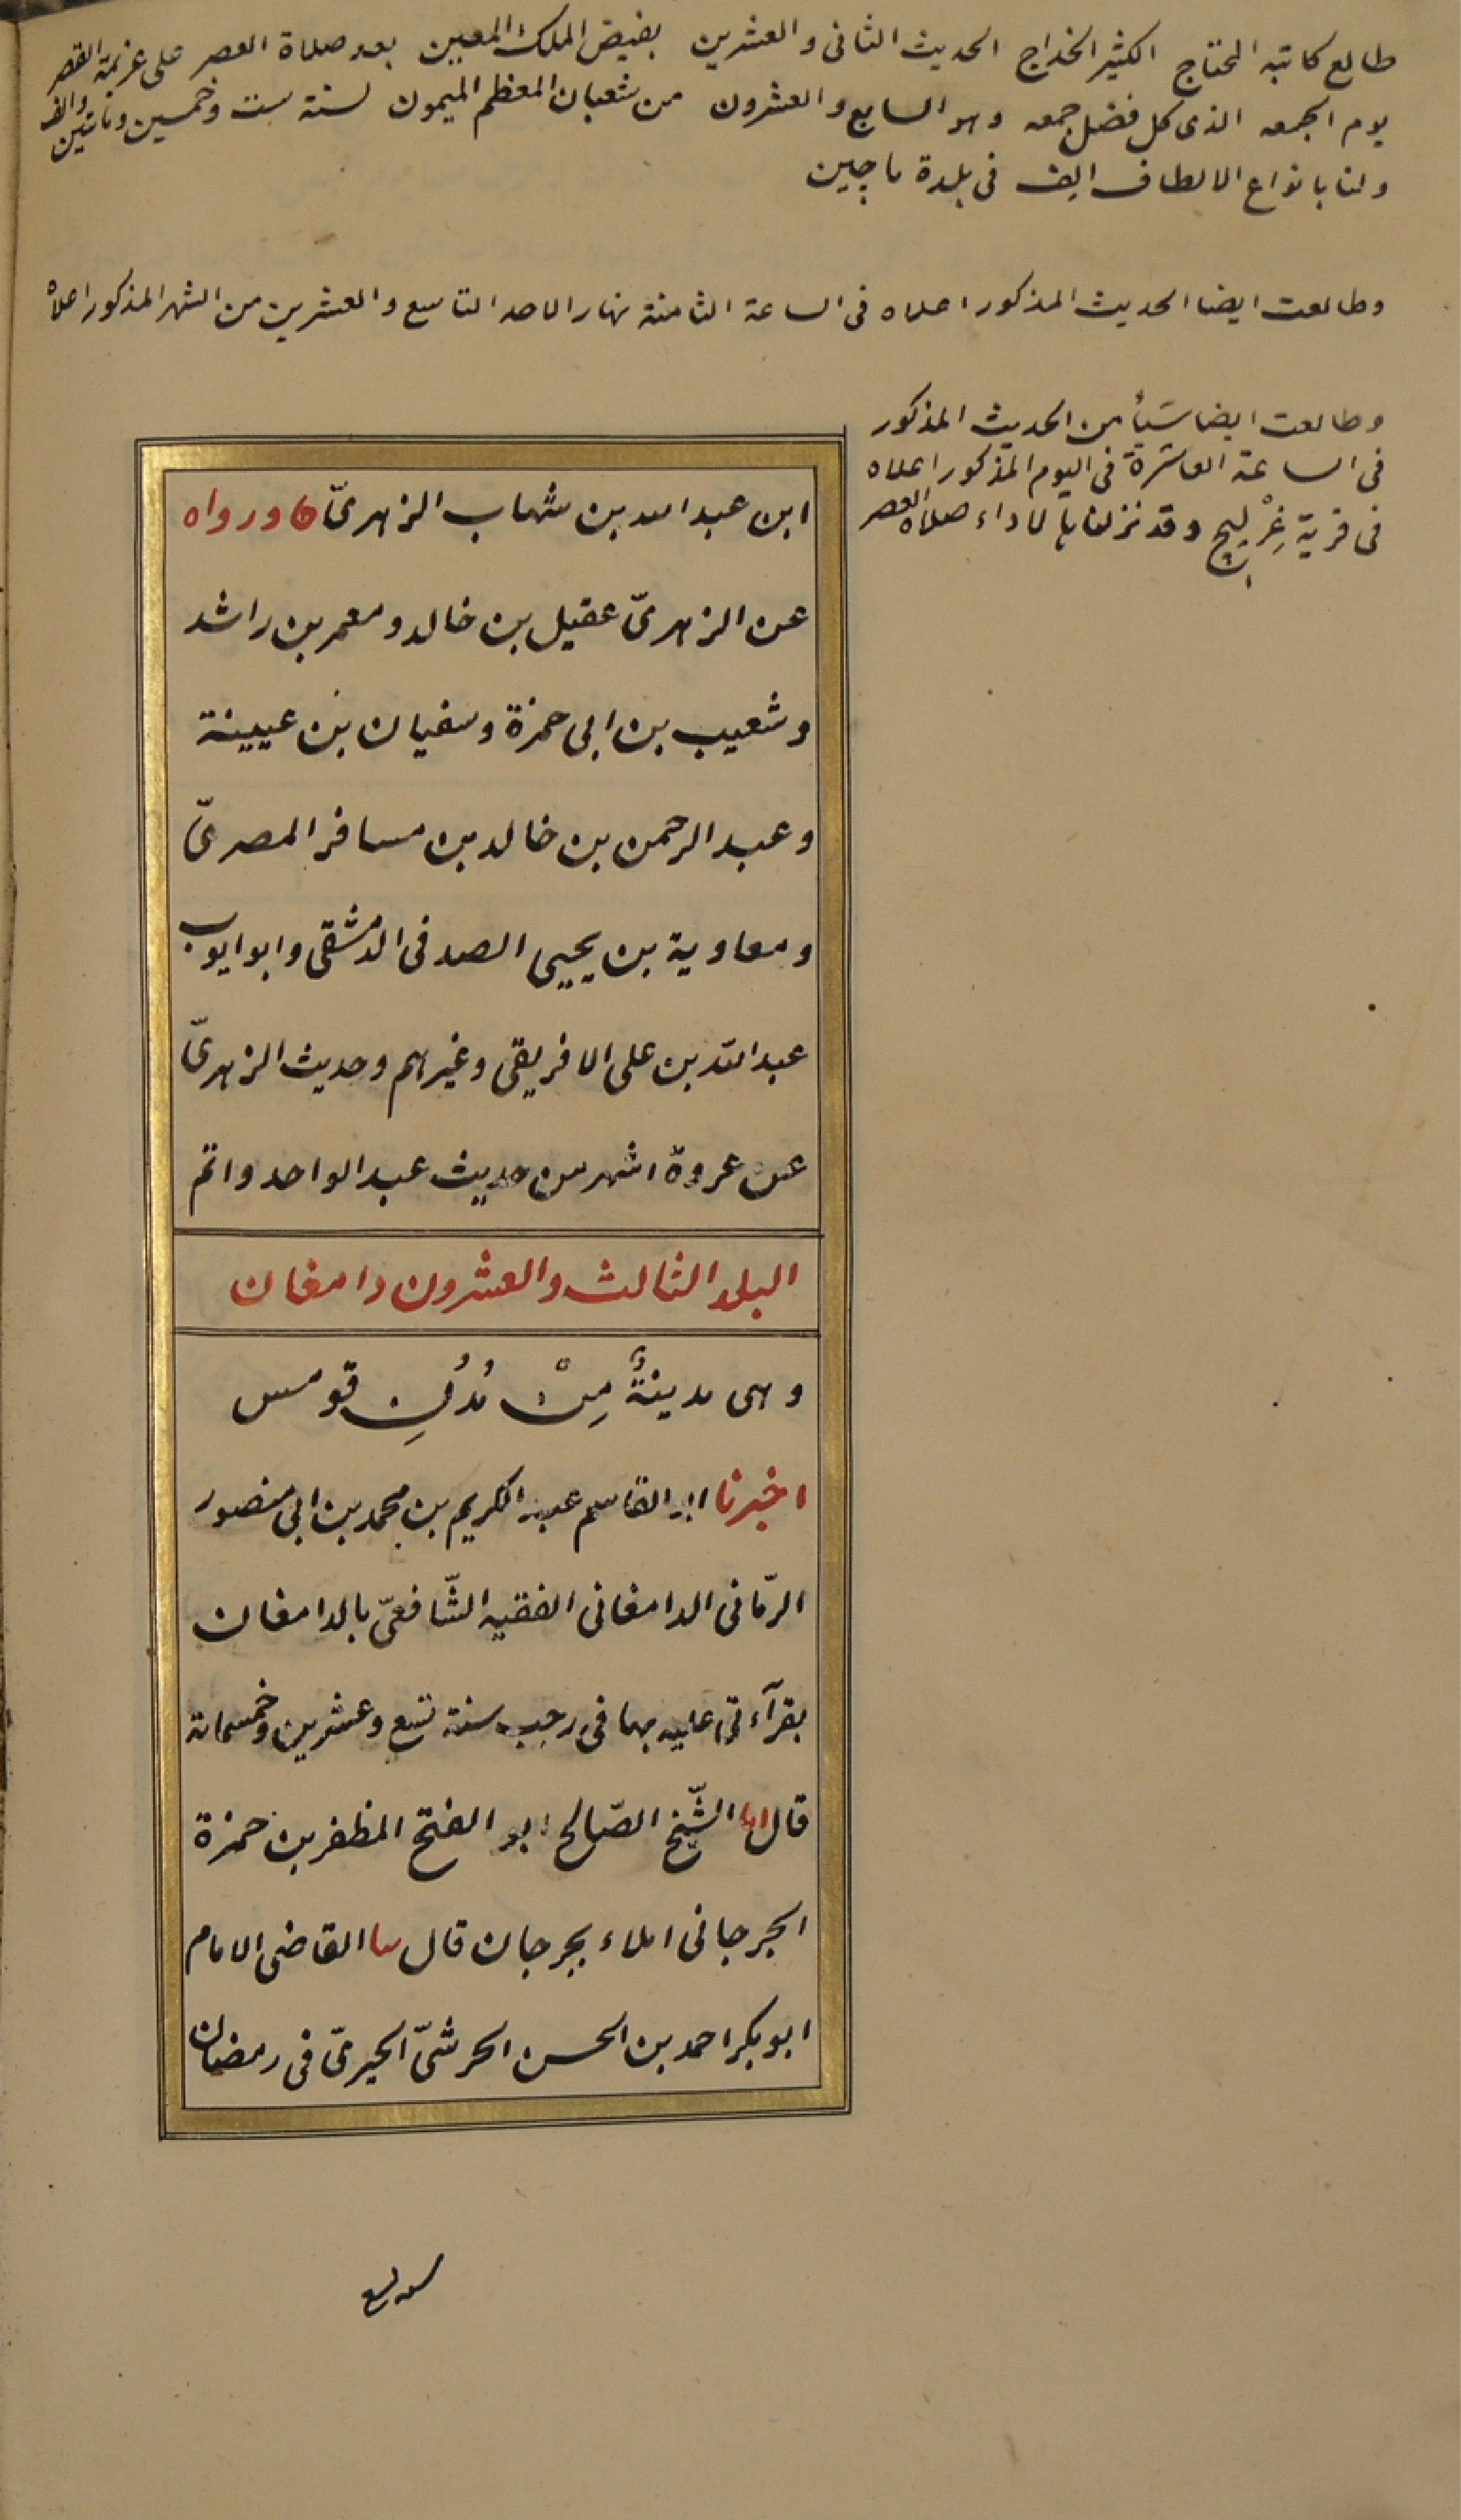 طالع كاتبه المحتاج الكثير الخداج الحديث الثانى والعشرين بفيض الملك المعين بعد صلاة العصر على عزيمة القصر
يوم الجمعه الذى كل فضل جمعه وهو السابع والعشرون من شعبان المعظم الميمون لسنة ست وخمسين ومائتين والف
ولنا بانواع الالطاف الف فى بلدة ماچين
وطالعت ايضا الحديث المذكور اعلاه فى الساعة الثامنة نهار الاحد التاسع والعشرين من الشهر المذكور اعلاه
وطالعت ايضا شيأ من الحديث المذكور
فى الساعة العاشرة فى اليوم المذكور اعلاه
فى قرية وقد نزلنا بها لاداء صلاة العصر
ابن عبد الله بن شهاب الزهرىّ ورواه
عن الزهرىّ عقيل بن خالد ومعمر بن راشد
وشعيب بن ابى حمزة وسفيان بن عيينة
وعبد الرحمن بن خالد بن مسافر المصرىّ
ومعاوية بن يحيى الصدفى الدمشقى وابو ايوب
عبد الله بن على الافريقى وغيرهم وحديث الزهرىّ
عن عروة اشهر من حديث عبد الواحد واتم
البلد الثالث والعشرون دامغان
وهى مدينةٌ مِنْ مُدُنِ قومس
اخبرنا ابو القاسم عبد الكريم بن محمد بن ابى منصور
الرّمانى الدامغانى الفقيه الشّافعىّ بالدامغان
بقرآءتى عليه بها فى رجب سنة تسع وعشرين وخمسمائة
قال انا الشّيخ الصّالح ابو الفتح المظفر بن حمزة
الجرجانى املاء بجرجان قال ثنا القاضى الامام
ابو بكر احمد بن الحسن الحرشىّ الحيرىّ فى رمضان